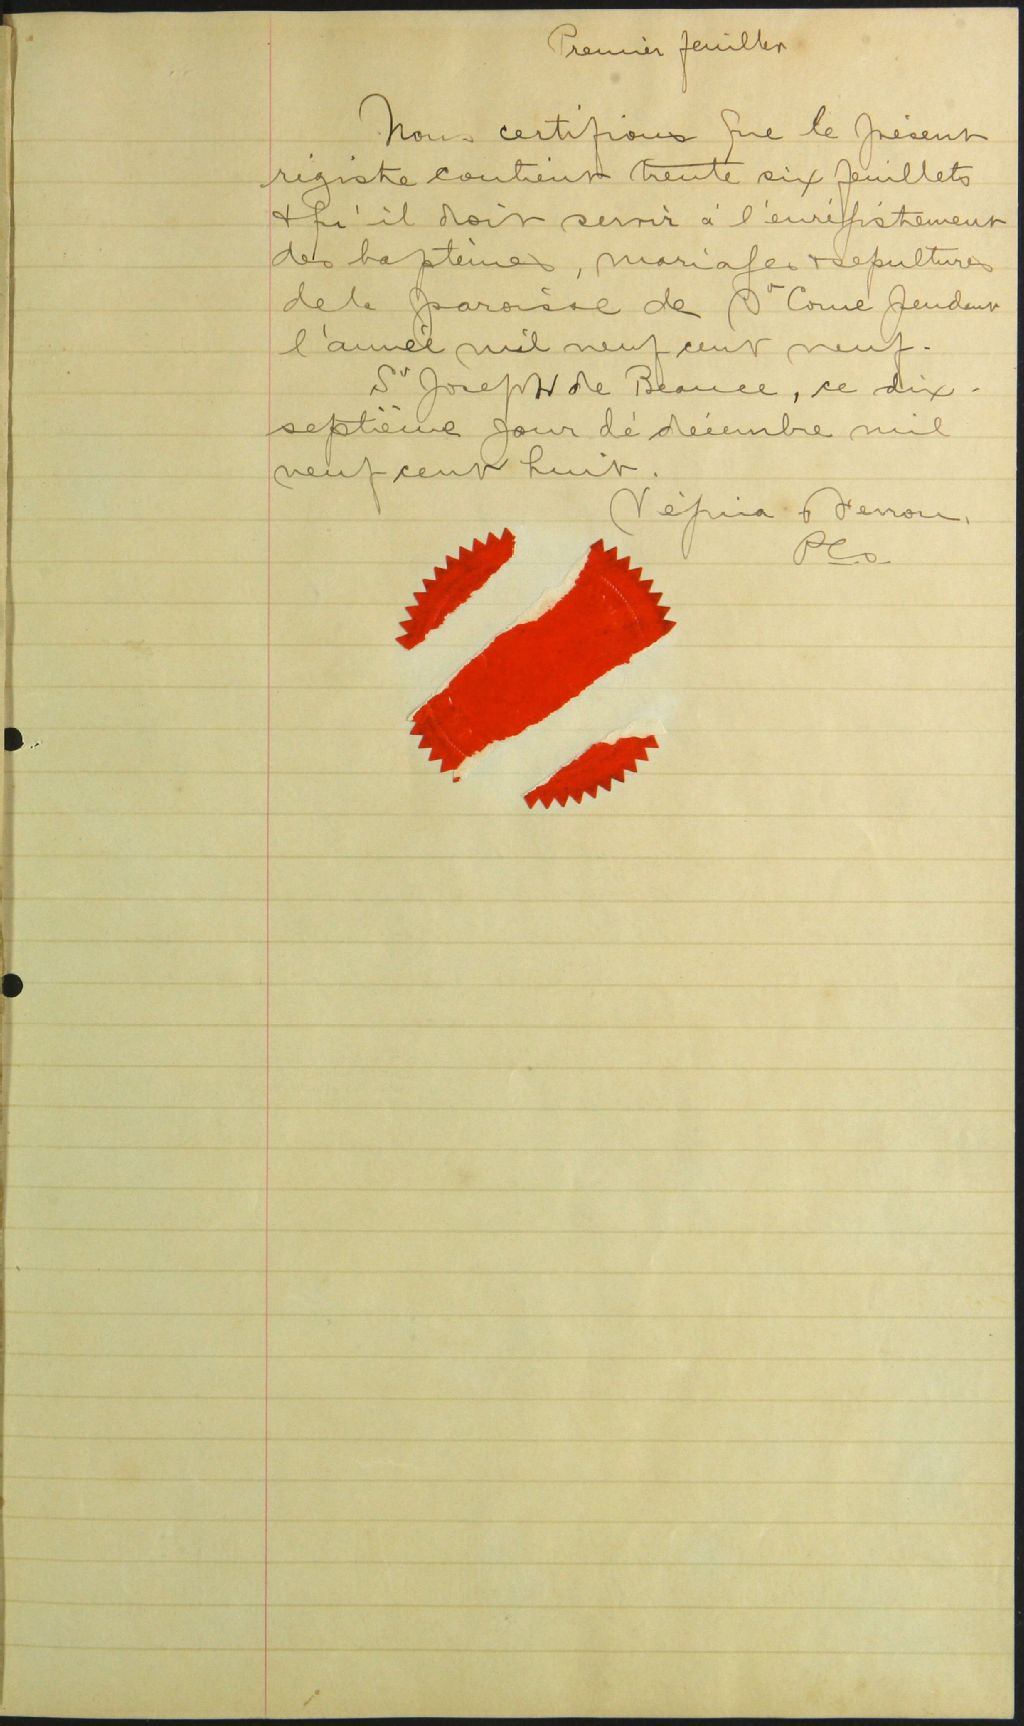 Premier feuillet
Nous certifions que le présent
régistre contient trente six feuillets
& qu'il doit servir à l'enrégistrement
des baptèmes, mariages & sepultures
de la paroisse de St Come pendant
l'année mil neuf cent neuf.
St Joseph de Beauce, ce dix-
septième jour de décembre mil
neuf cent huit.
Vézina &
P C S